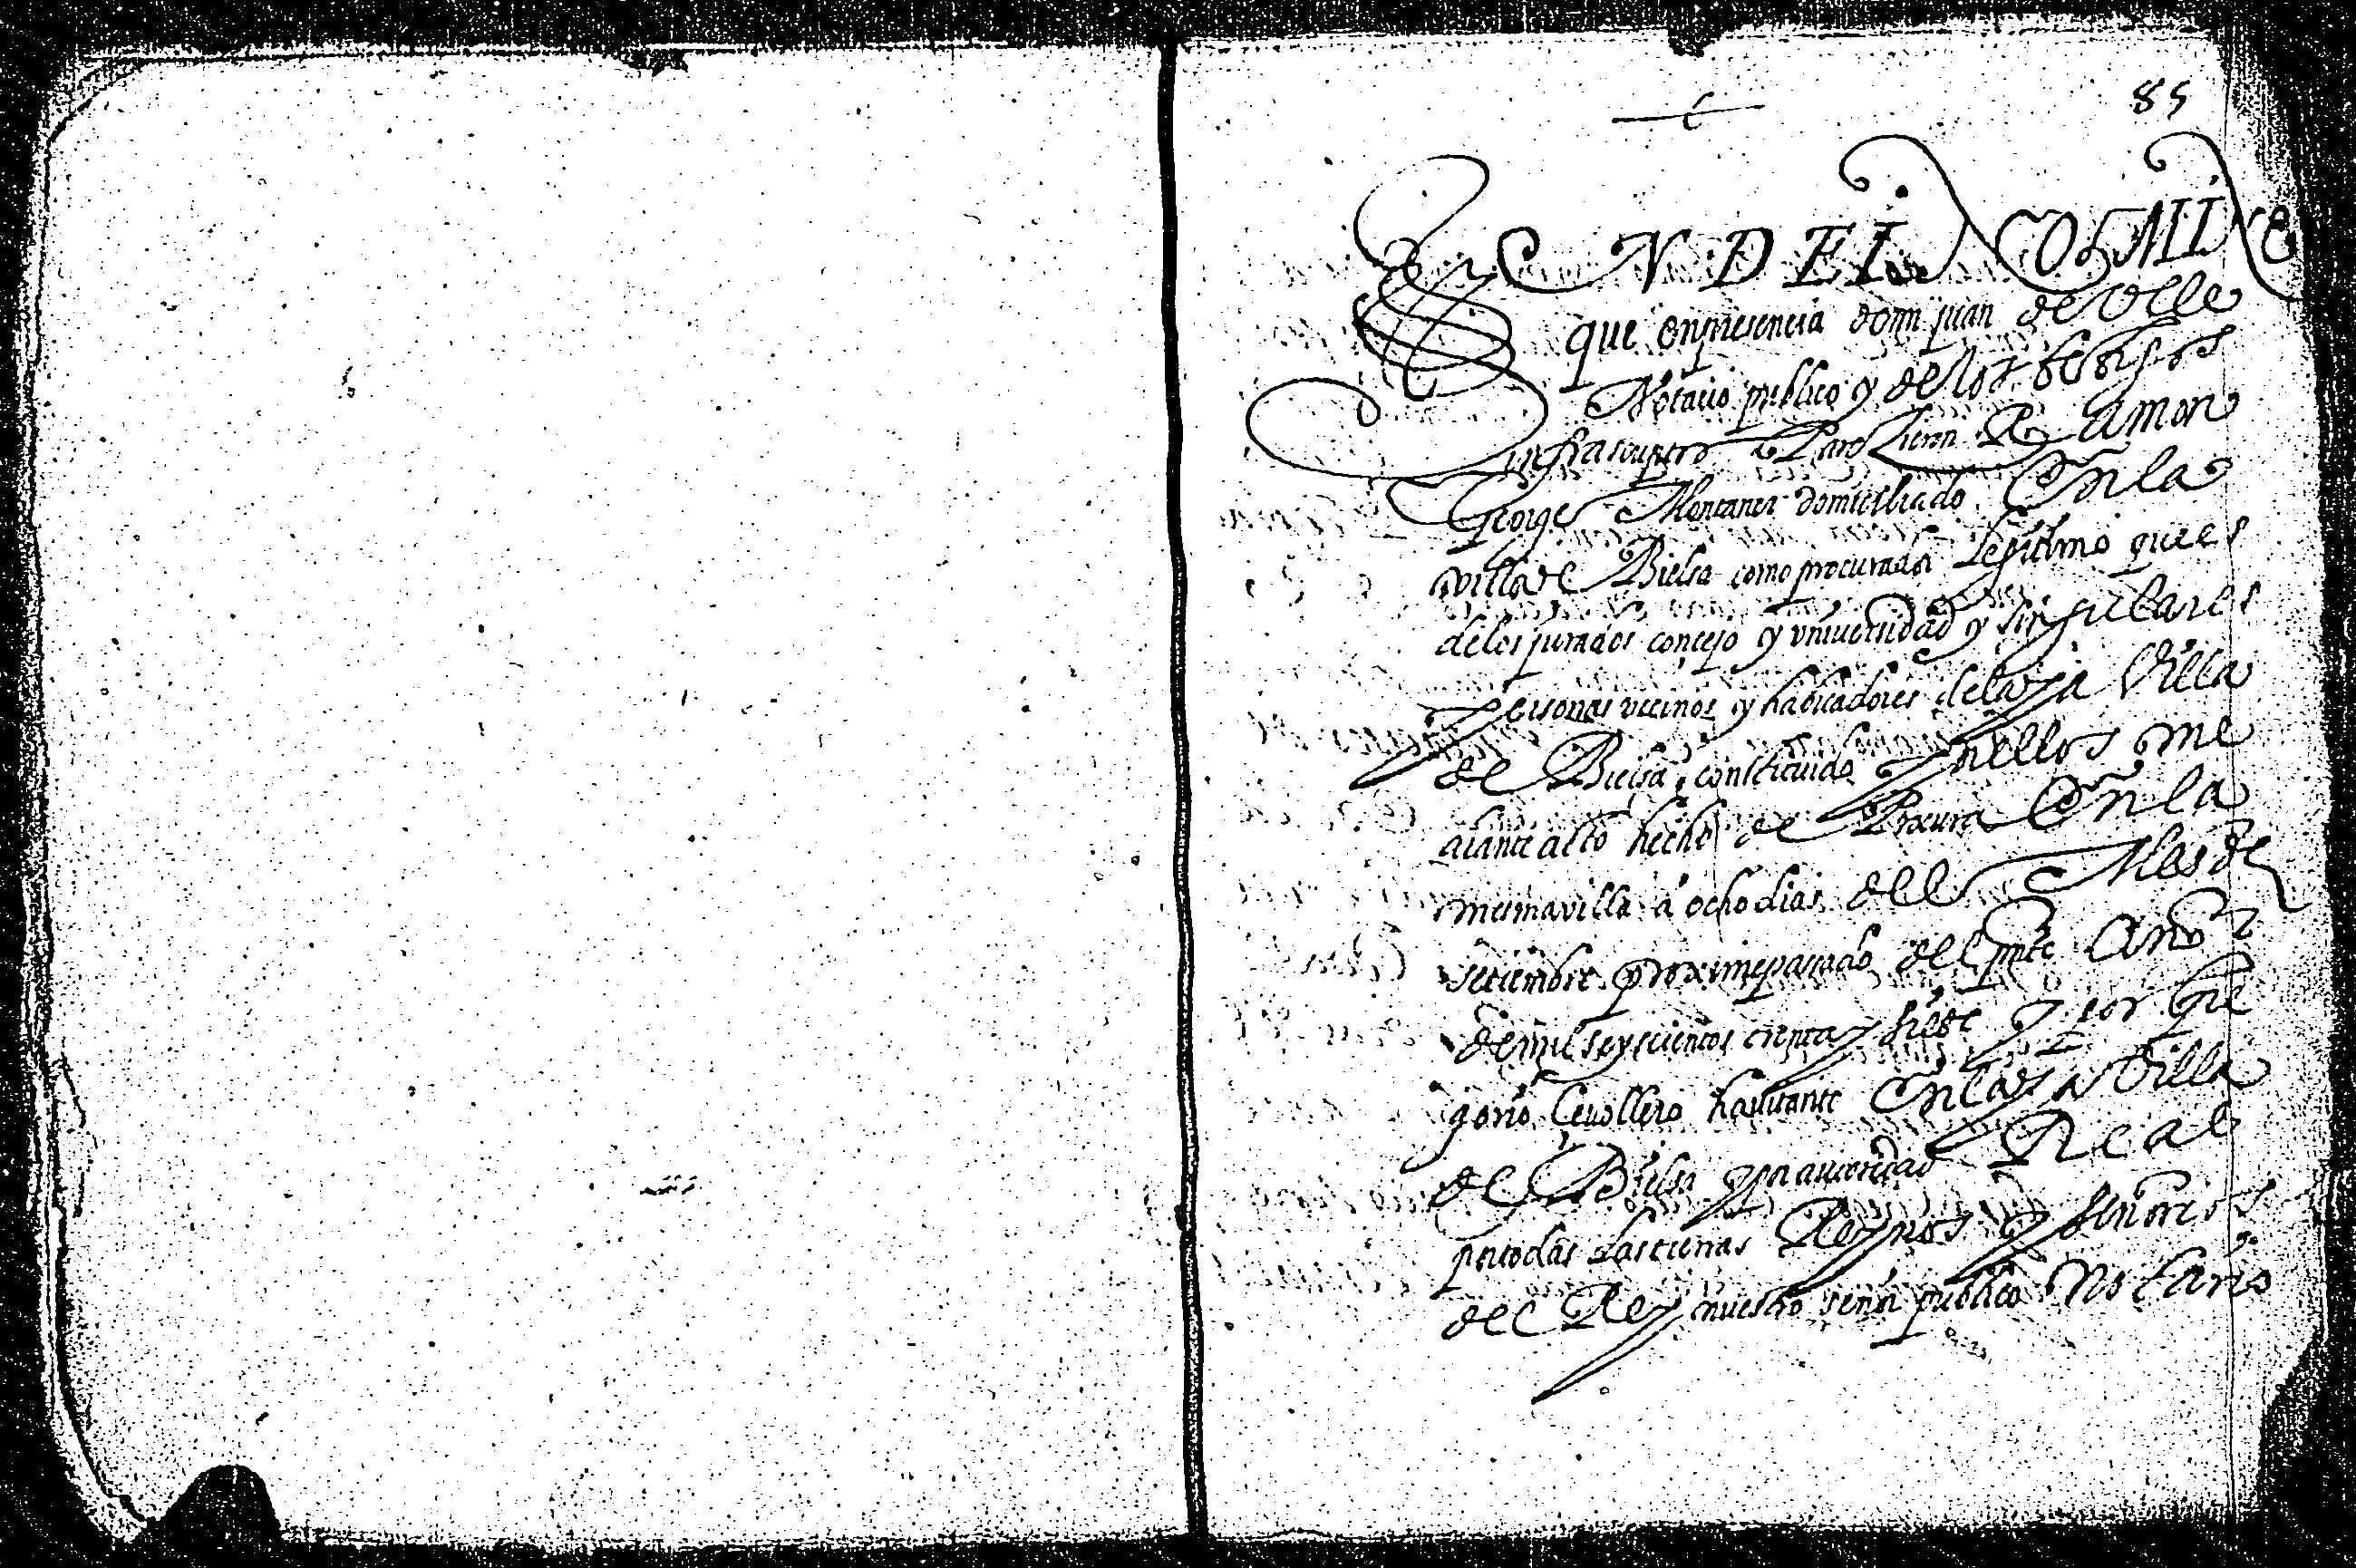 85
EN DEL COSMIRE
que en presencia de mi juan de Olle
Notario publico y de los testigos
infrascriptos Parescieron Ramon
George Montaner domiciliado En la
villa de Bielsa como procurador Legitimo que es
de los jurados concejo y universidad y singulares
personas vecinos y habitadores de la Villa
de Bielsa constituido me
diante acto hecho de Procura En la
mesma villa a ocho dias del Mes de
setiembre proxime passado del pnte Año
de mil seyscientos trenta y siete y por Gre
gorio Cevollero havitante En la Villa
de Bielsa y autoridad Real
por todas Las tierras Reynos y señorios
del Rey nuestro señor publico Notario